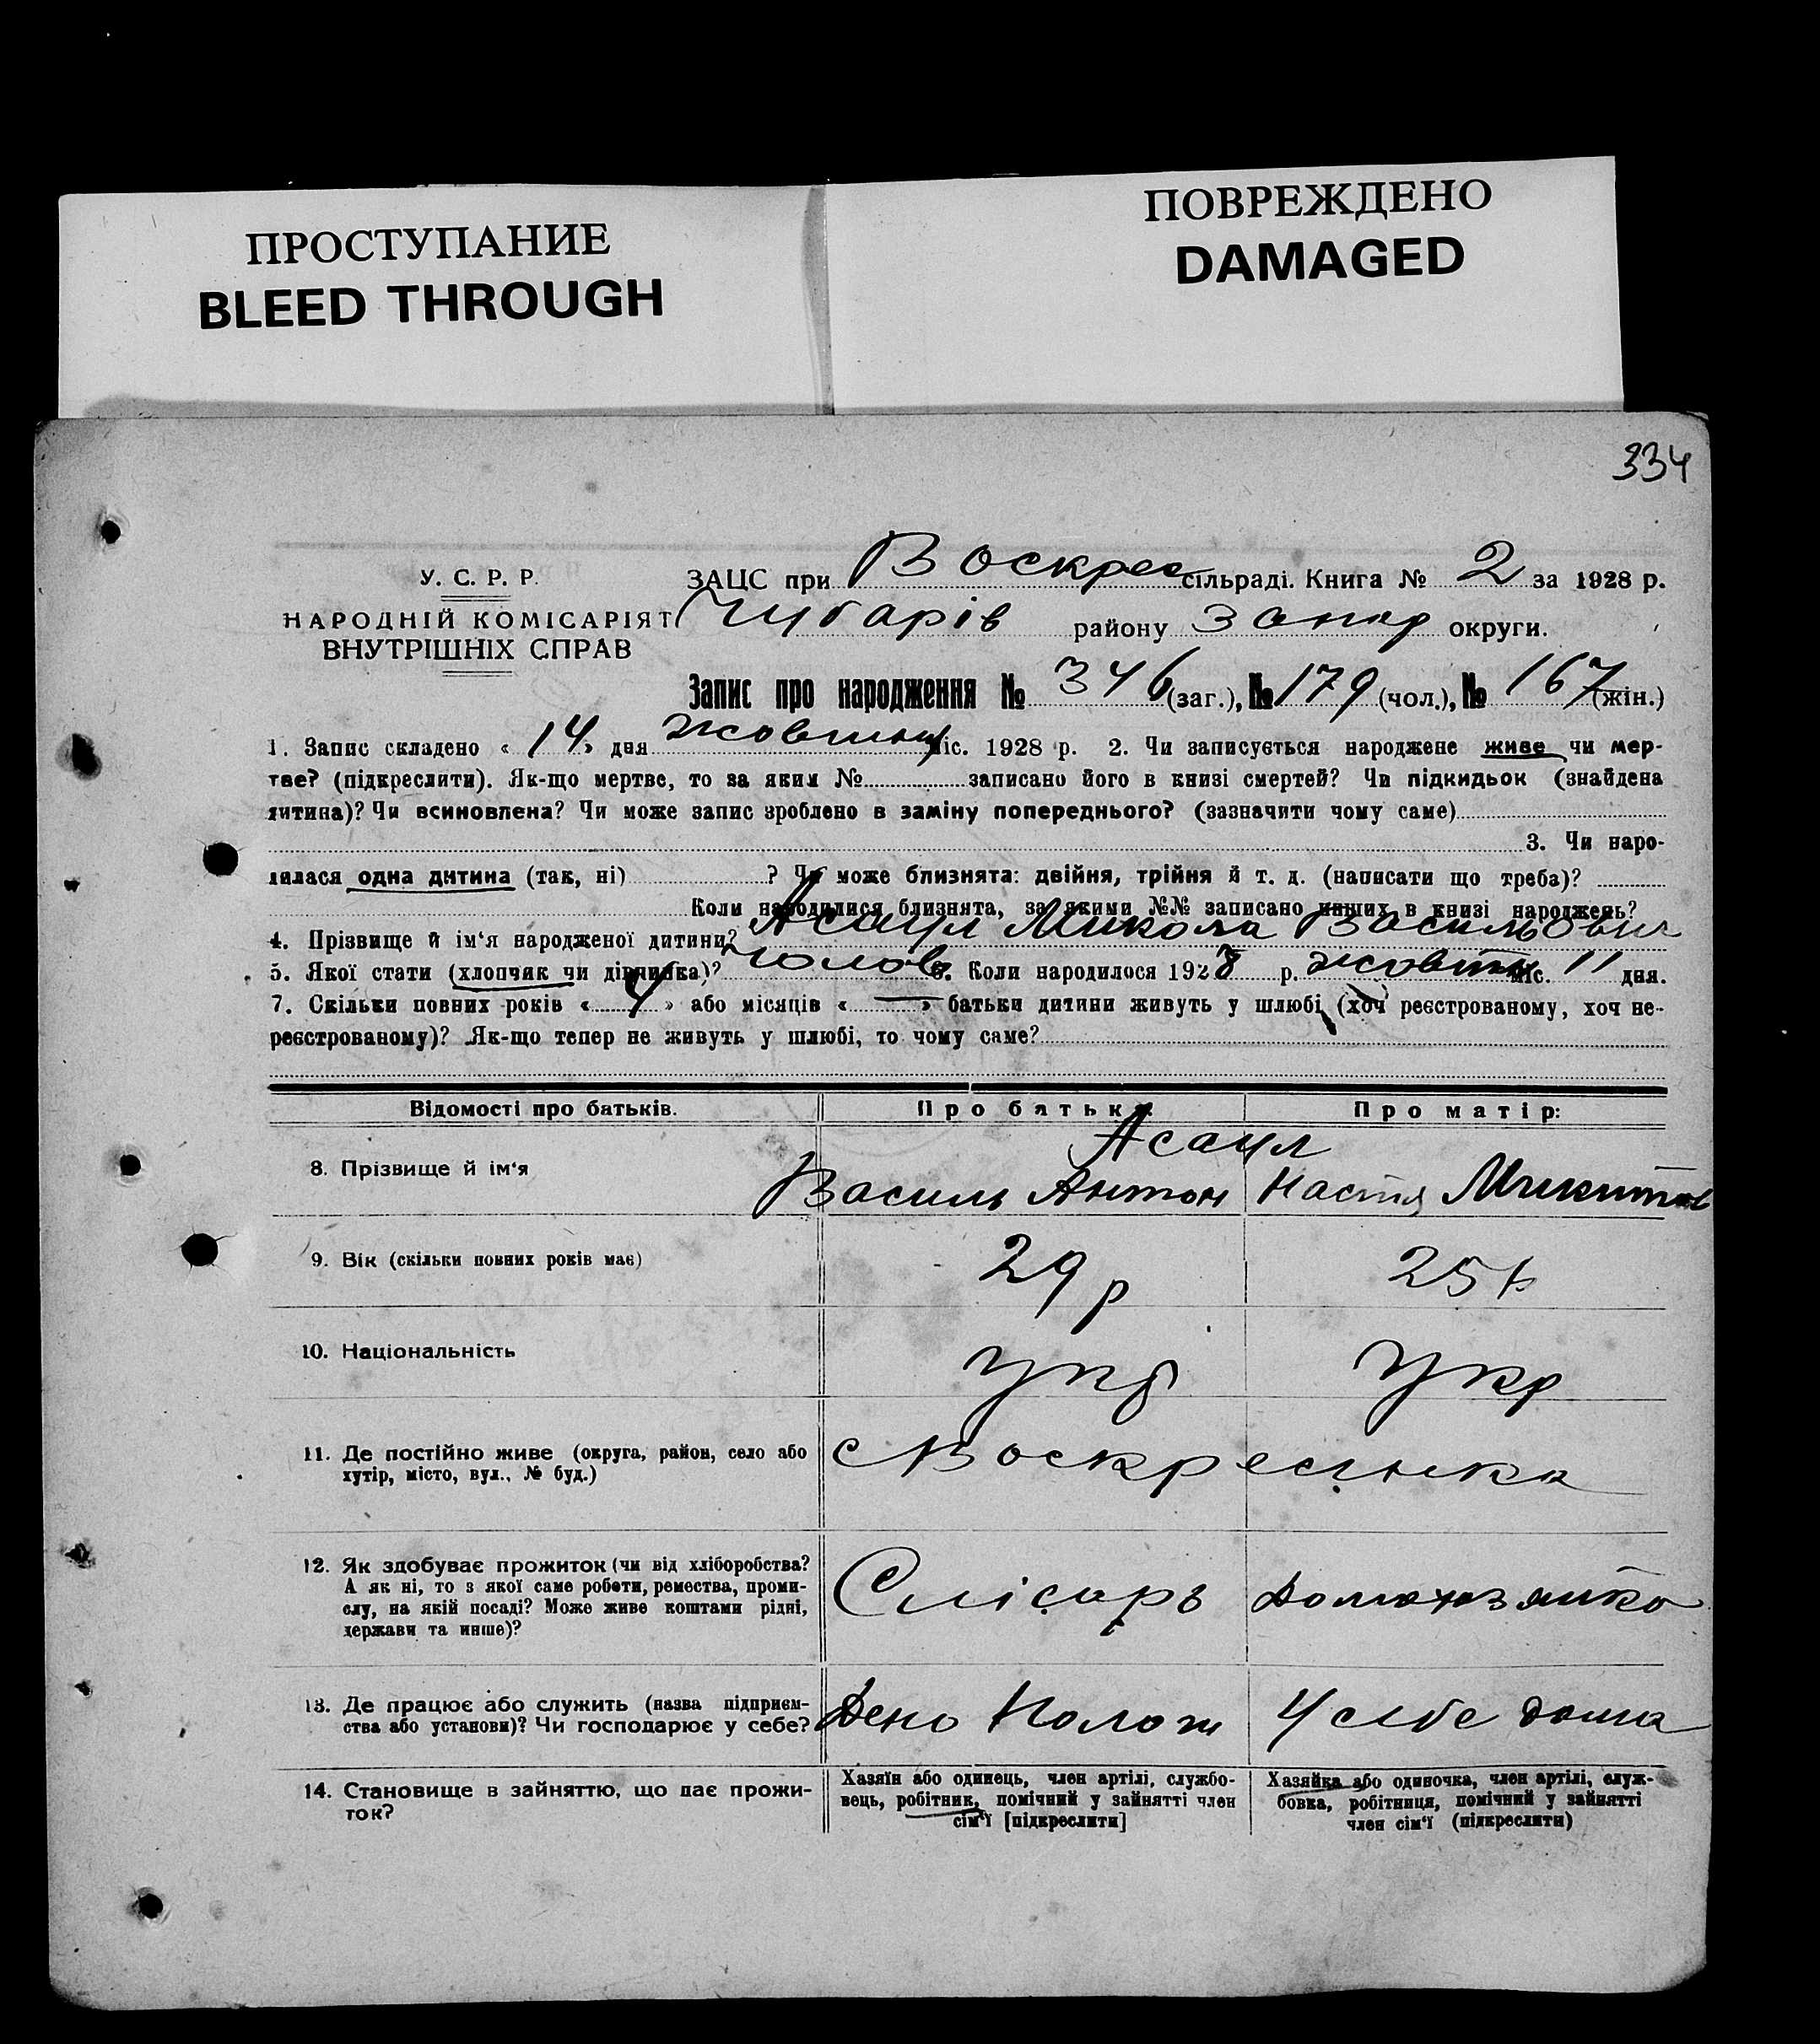 ПРОСТУПАНИЕ
BLEED THROUGH
ПОВРЕЖДЕНО
DAMAGED
334
У. С. Р. Р.
НАРОДНІЙ КОМІСАРІЯТ
ВНУТРІШНІХ СПРАВ
ЗАЦС при Воскрес сільраді. Книга № 2 за 1928 р.
Чубарів району Запор округи.
Запис про народження № 346 (заг.), № 179 (чол.), № 167 (жін.)
1. Запис складено « 14 » дня жовтня міс. 1928 р. 2. Чи записується народжене живе чи мер-
тве? (підкреслити). Як-що мертве, то за яким № записано його в книзі смертей? Чи підкидьок (знайдена
дитина)? Чи всиновлена? Чи може запис зроблено в заміну попереднього? (зазначити чому саме)
3. Чи наро-
дилася одна дитина (так, ні) ? Чи може близнята: двійня, трійня й т. д. (написати що треба)?
Коли народилися близнята, за якими №№ записано инших в книзі народжень?
4. Прізвище й ім'я народженої дитини? Асаул Микола Васильович
5. Якої стати (хлопчик чи дівчинка)? чолов 6. Коли народилося 1928 р. жовтня міс. 11 дня.
7. Скільки повних років « 4 » або місяців « — » батьки дитини живуть у шлюбі (хоч реєстрованому, хоч не-
реєстрованому)? Як-що тепер не живуть у шлюбі, то чому саме?
Відомості про батьків. Про батька: Про матір:
8. Прізвище й ім'я
Асаул
Василь Антон Настя Микитов
9. Вік (скільки повних років має) 29 р 25 р
10. Національність Укр Укр
11. Де постійно живе (округа, район, село або
хутір, місто, вул., № буд.)
с Воскресенка
12. Як здобуває прожиток (чи від хліборобства?
А як ні, то з якої саме роботи, ремества, проми-
слу, на якій посаді? Може живе коштами рідні,
держави та инше)?
Слісарь Домохозяйка
13. Де працює або служить (назва підприєм-
ства або установи)? Чи господарює у себе?
Депо Полог У себе дома
14. Становище в зайняттю, що дає прожи-
ток?
Хазяїн або одинець, член артілі, службо-
вець, робітник, помічний у зайнятті член
сім'ї [підкреслити]
Хазяйка або одиночка, член артілі, служ-
бовка, робітниця, помічний у зайнятті
член сім'ї (підкреслити)